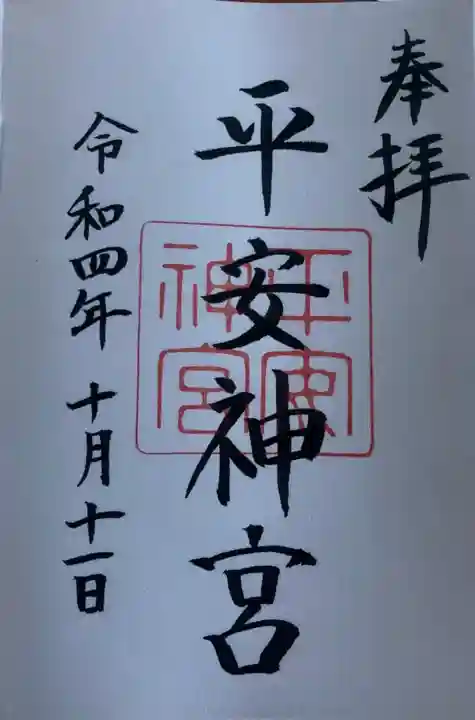 奉拝
平安神宮
平安神宮
令和四年 十月十一日